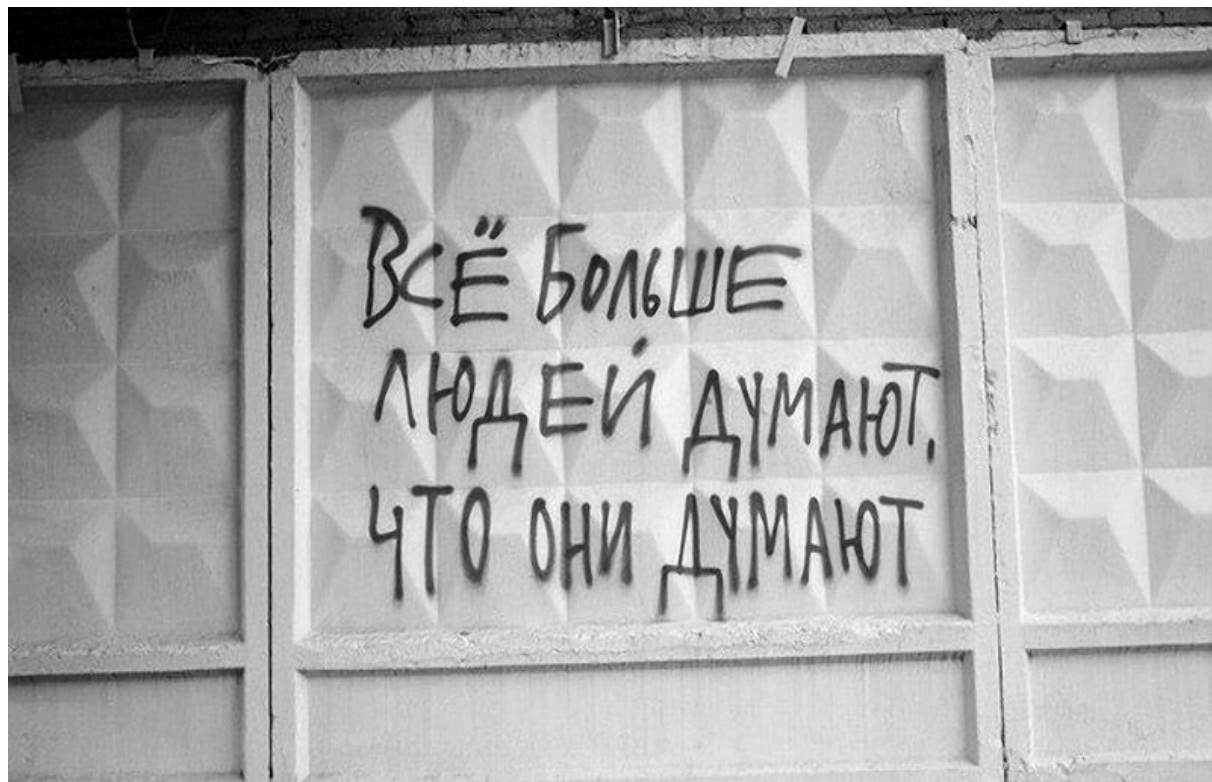 ВСЁ БОЛЬШЕ
ЛЮДЕЙ ДУМАЮТ,
ЧТО ОНИ ДУМАЮТ